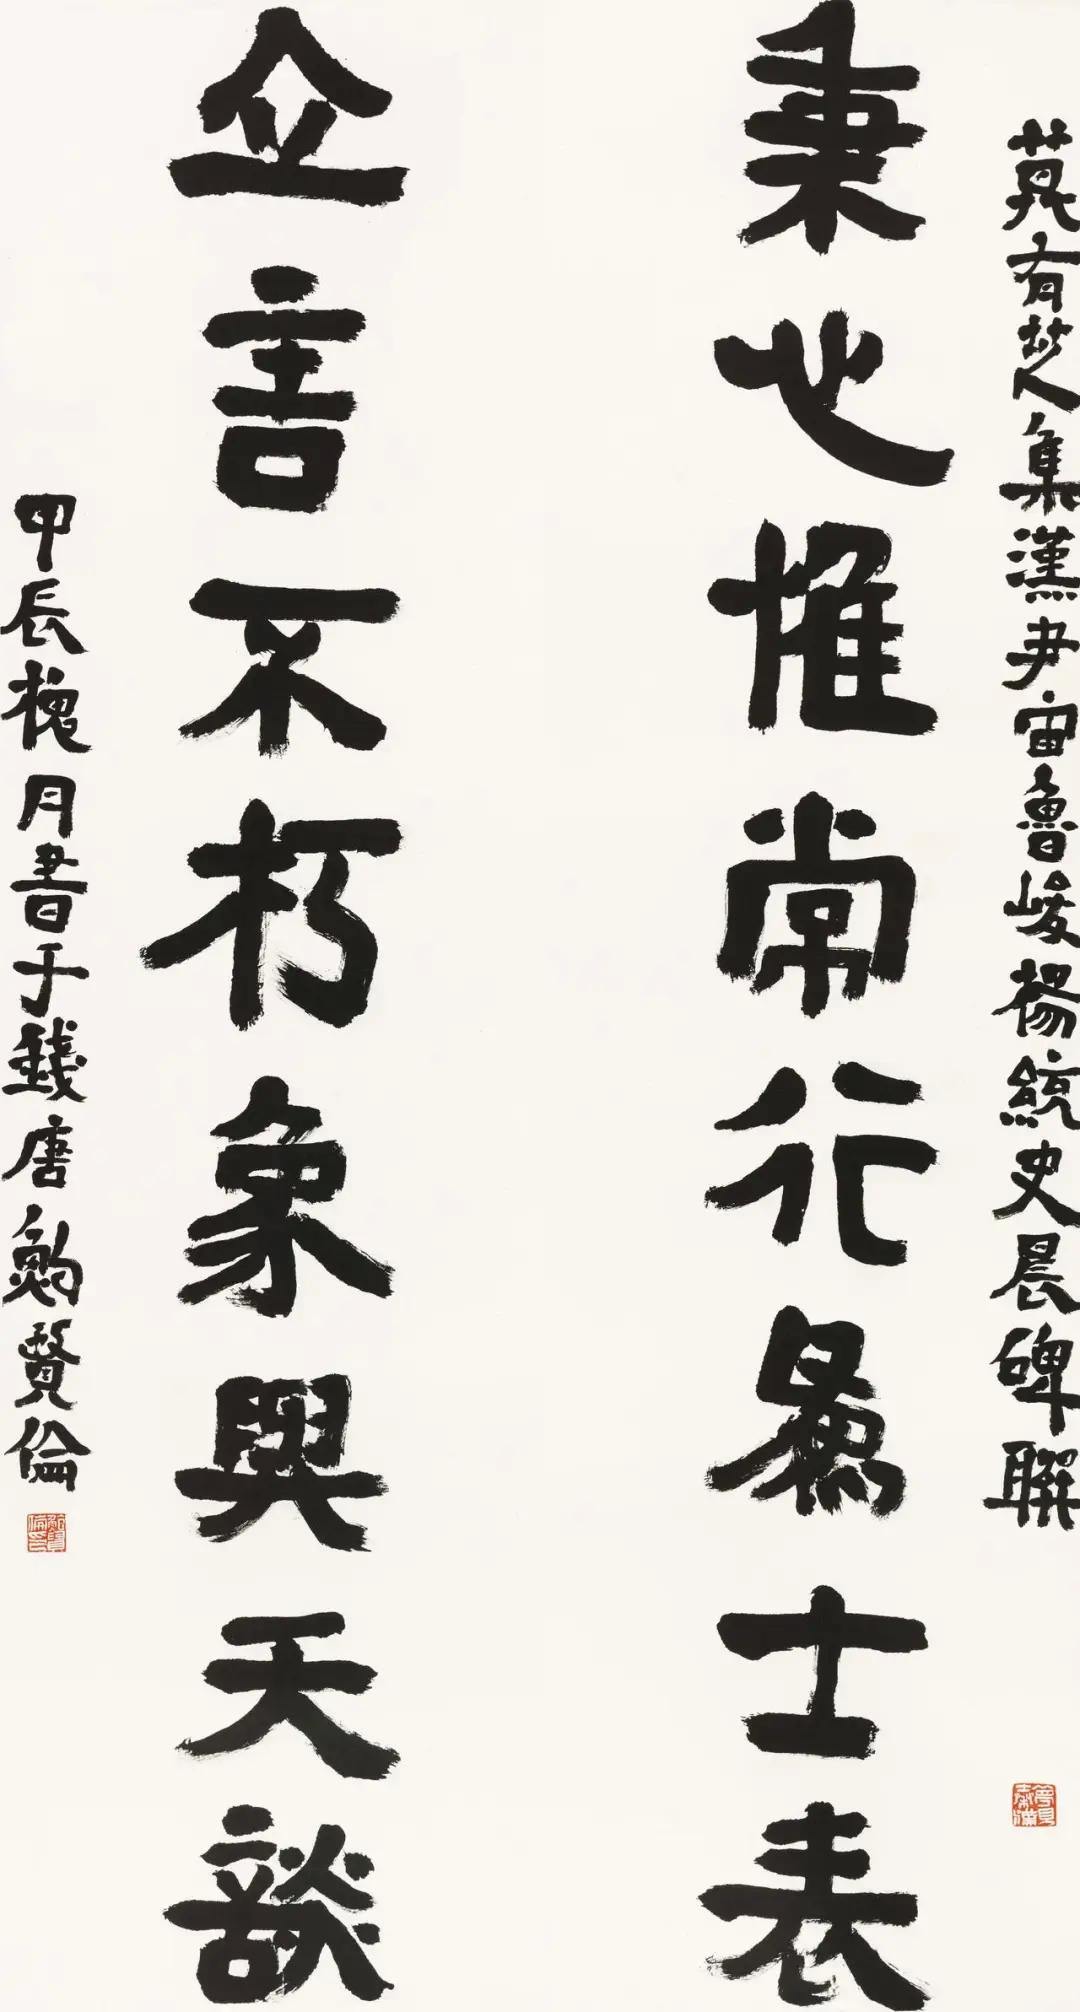 莫有芝集漢尹宙魯峻楊統史晨碑聯
秉心惟常行為士表
立言不朽象與天談
甲辰槐月書于錢唐鮑賢倫
夢見秦漢